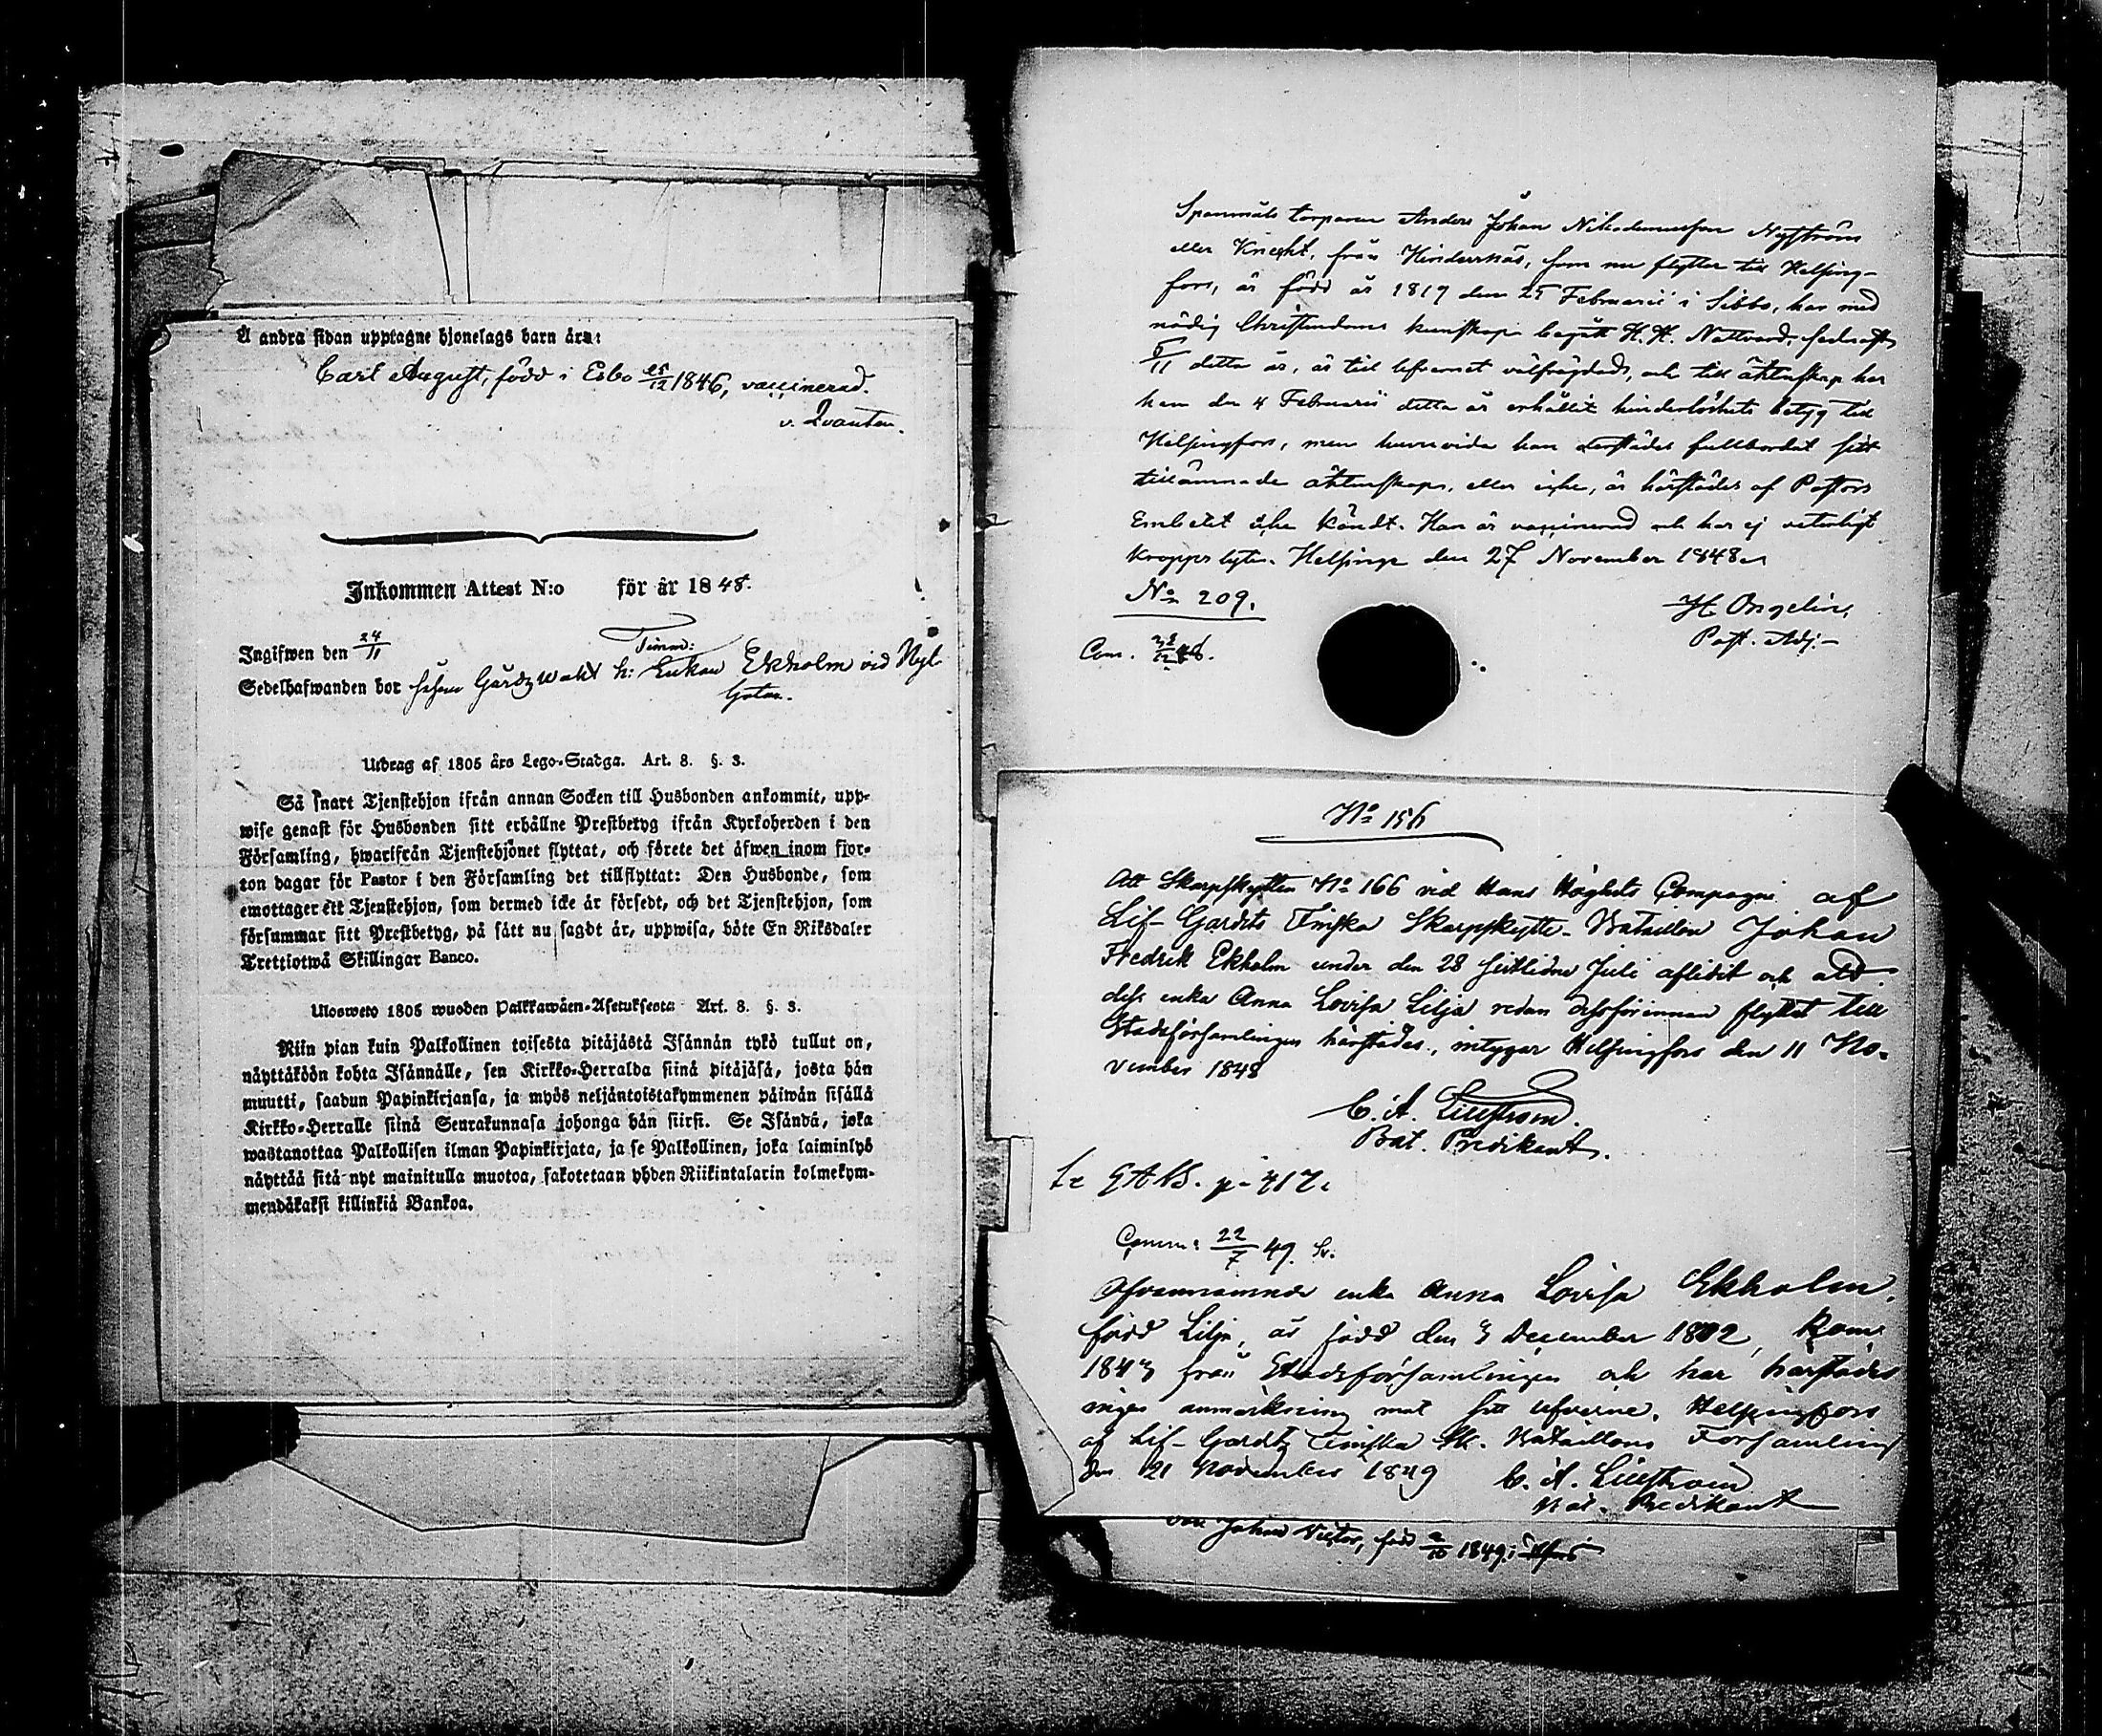 Å andra sidan upptagne hjonelags barn äro:
Carl August, född i Esbo 25/12 1846, vaccinerad.
v. Qvanten.
Inkommen Attest N:o för år 1848.
Ingifwen den 24/11
Timm:
Sedelhafwanden bor h: Enkan Ekholm vid Nyl
Gatan.
Utdrag af 1805 års Lego-Stadga. Art. 8. §. 3.
Så snart Tjenstehjon ifrån annan Socken till Husbonden ankommit, upp-
wise genast för Husbonden sitt erhållne Prestbetyg ifrån Kyrkoherden i den
Församling, hwarifrån Tjenstehjonet flyttat, och förete det äfwen inom fjor-
ton dagar för Pastor i den Församling det tillflyttat: Den Husbonde, som
emottager ett Tjenstehjon, som dermed icke är försedt, och det Tjenstehjon, som
försummar sitt Prestbetyg, på sätt nu sagdt är, uppwisa, böte En Riksdaler
Trettiotwå Skillingar Banco.
Ulosweto 1805 wuoden Palkkawäen-Asetuksesta Art. 8. §. 3.
Niin pian kuin Palkollinen toisesta pitäjästä Isännän tykö tullut on,
näyttäköön kohta Isännälle, sen Kirkko-Herralda siinä pitäjäsä, josta hän
muutti, saadun Papinkirjansa, ja myös neljäntoistakymmenen päiwän sisällä
Kirkko-Herralle siinä Seurakunnasa johonga hän siirsi. Se Isändä, joka
wastanottaa Palkollisen ilman Papinkirjata, ja se Palkollinen, joka laiminlyö
näyttää sitä nyt mainitulla muotoa, sakotetaan yhden Riikintalarin kolmekym-
mendäkaksi killinkiä Bankoa.
Spanmåls torparen Anders Johan Nikodemusson Nyström
eller Knecht, från Hindersnäs, som nu flyttar till Helsing-
fors, är född år 1819 den 25 Februarii i Sibbo, har med
nödig Christendoms kunskap begått H. H. Nattvard, sednast
5/11 detta år, är till lefvernet välfrägdad, och till äktenskap har
han den 4 Februarii detta år erhållit hinderlöshets betyg till
Helsingfors, men huruvida han derstädes fullbordat sitt
tillämnade äktenskap, eller icke, är härstädes af Pastors
Embetet icke kändt. Han är vaccinerad och har ej veterligt
kropps lyte. Helsinge den 27 November 1848.
H. Ongelin,
Past. Adj.
No 209.
Com.
No 156
Att Skarpskytten No 166 vid Hans Höghets Compagni af
Lif-Gardets Finska Skarpskytte-Bataillon Johan
Fredrik Ekholm under den 28 sistlidne Juli aflidit och att
dess enka Anna Lovisa Lilja redan dessförinnan flyttat till
Stadsförsamlingen härstädes, intygar Helsingfors den 11 No-
vember 1848
C. A. Lillström.
Bat. Predikant.
p. 417.
Comm: 22/7 49. Sv.
Ofvannämnde enka Anna Lovisa Ekholm,
född Lilja, är född den 3 December 1802, kom
1843 från Stadsförsamlingen och har härstädes
ingen anmärkning mot sitt lefverne. Helsingfors
af Lif-Gardets Finska Sk. Bataillons Församling
den 21 November 1849
C. A. Lillström
Bat. Predikant
Johan Victor, född 1849 i